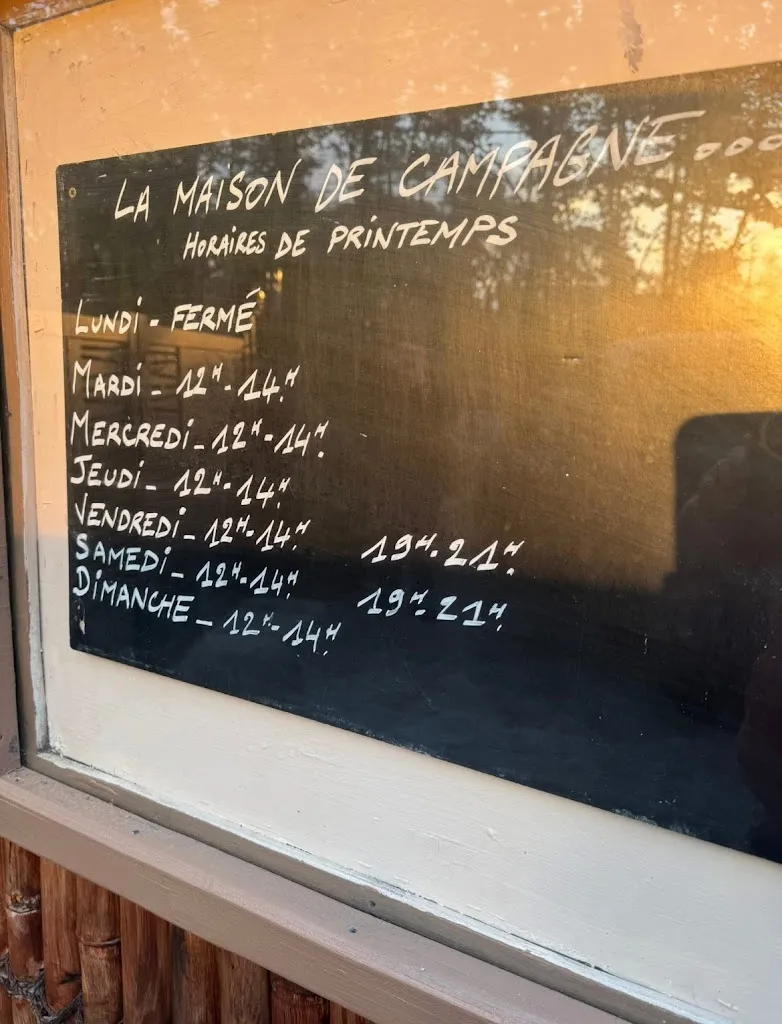 LA MAISON DE CAMPAGNE....
HORAIRES DE PRINTEMPS
LUNDI - FERMÉ
MARDI - 12H - 14H
MERCREDI - 12H - 14H
JEUDI - 12H - 14H
VENDREDI - 12H - 14H 19H - 21H
SAMEDI - 12H - 14H 19H - 21H
DIMANCHE - 12H - 14H